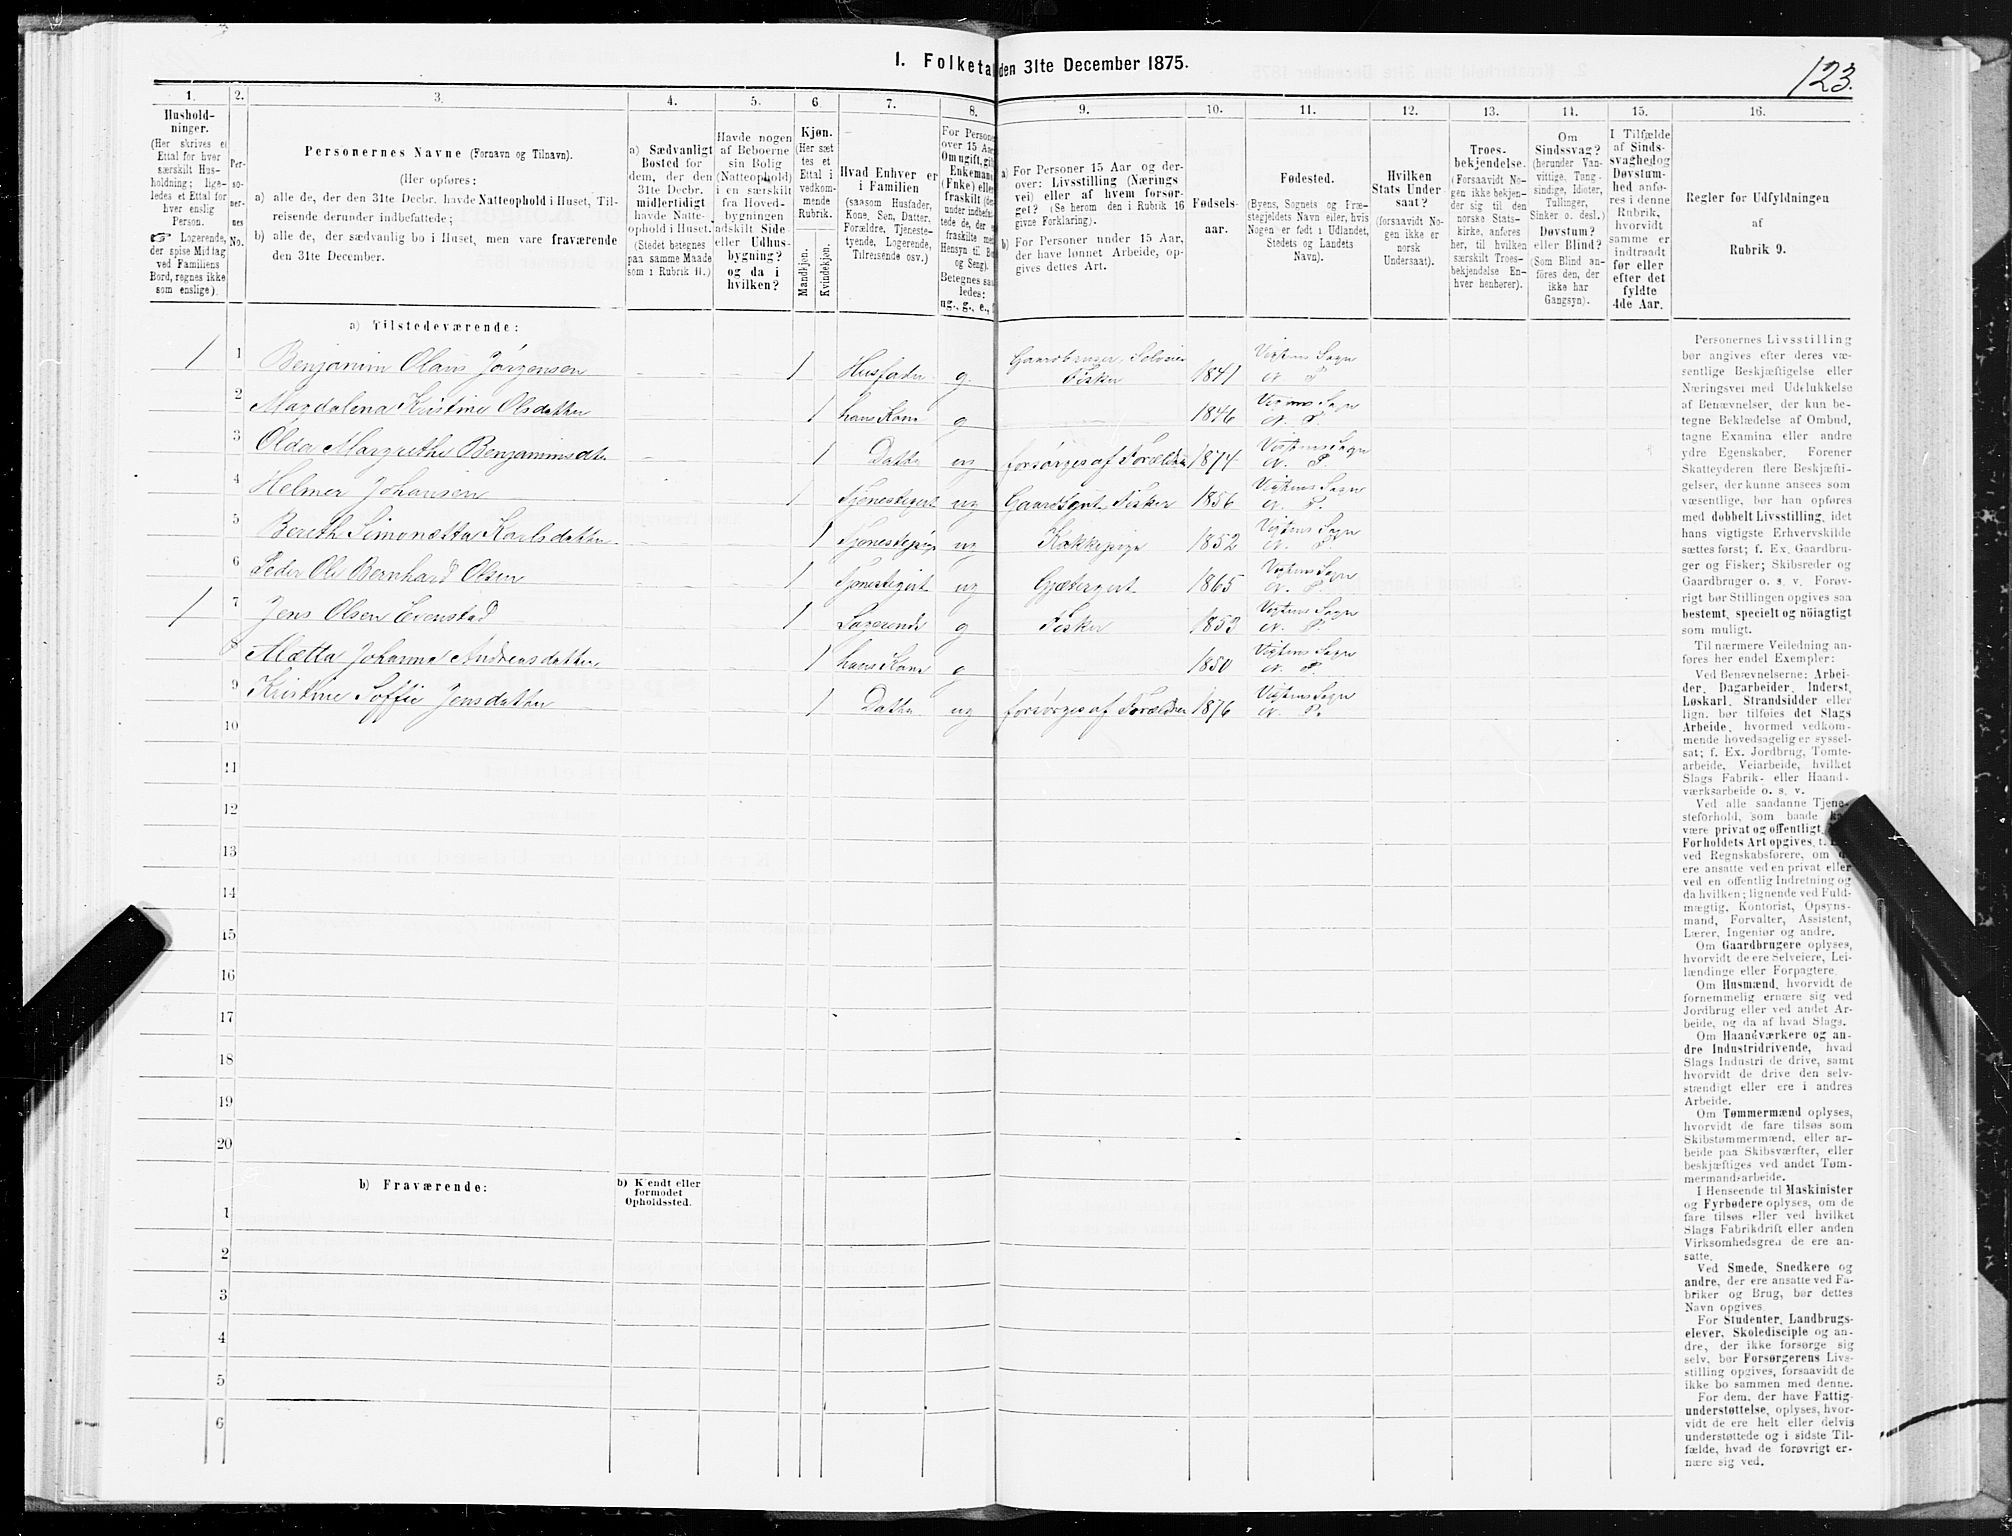 I. Folketa den 31te December 1875.
123.
1. 2. 3. 4. 5. 6. 7. 8. 9. 10. 11. 12. 13. 14. 15. 16.
Hushold-
ninger.
(Her skrives et
Ettal for hver
særskilt Hus-
holdning; lige-
ledes et Ettal for
hver enslig
Person.
☞ Logerende,
der spise Middag
ved Familiens
Bord, regnes ikke
som enslige).
Per-
so-
ner-
nes
No.
Personernes Navne (Fornavn og Tilnavn).
(Her opføres:
a) alle de, der den 31te Decbr. havde Natteophold i Huset, Til-
reisende derunder indbefattede;
b) alle de, der sædvanlig bo i Huset, men vare fraværende
den 31te December.
a) Sædvanligt
Bosted for
dem, der den
31te Decbr.
midlertidigt
havde Natte-
ophold i Huset.
(Stedet betegnes
paa samme Maade
som i Rubrik 11.)
Havde nogen
af Beboerne
sin Bolig
(Natteophold)
i en særskilt
fra Hoved-
bygningen
adskilt Side-
eller Udhus-
bygning?
og da i
hvilken?
Kjøn.
(Her sæt
tes et
Ettal i
vedkom-
mende
Rubrik.
Mandkjøn.
Kvindekjøn.
Hvad Enhver er
i Familien
(saasom Husfader,
Kone, Søn, Datter,
Forældre, Tjeneste-
tyende, Logerende,
Tilreisende osv.)
For Persone
over 15 Aa
Om ugift, gift
Enkemand
(Enke) elle
fraskilt (de
under indbefat
tede de, der e
fraskilte med
Hensyn til Bo
og Seng).
Betegnes saa
ledes:
ug., g., e., f
a) For Personer 15 Aar og der-
over: Livsstilling (Nærings
vei) eller af hvem forsør-
get? (Se herom den i Rubrik 16
givne Forklaring).
b) For Personer under 15 Aar,
der have lønnet Arbeide, op-
gives dettes Art.
Fødsels-
aar.
Fødested.
(Byens, Sognets og Præ-
stegjeldets Navn eller, hvis
Nogen er født i Udlandet,
Stedets og Landets
Navn).
Hvilken
Stats Under
saat?
(forsaavidt No-
gen ikke er
norsk
Undersaat).
Troes-
bekjendelse.
(Forsaavidt No-
gen ikke bekjen-
der sig til den
norske Stats-
kirke, anføres
her, til hvilken
særskilt Troes-
bekjendelse En-
hver henhører).
Om
Sindssvag?
(herunder Van-
vittige, Tung-
sindige, Idioter,
Tullinger,
Sinker o. desl.)
Døvstum?
eller Blind?
(Som Blind an-
føres den, der
ikke har
Gangsyn).
I Tilfælde
af Sinds-
svaghed og
Døvstum-
hed anfø-
res i denne
Rubrik,
hvorvidt
samme er
indtraadt
før eller
efter det
fyldte
4de Aar.
Regler for Udfyldningen
af
Rubrik 9.
a) Tilstedeværende:
1 1 Benjamin Olaus Jørgensen 1 Husfader g. Gaardbruger, Selveier Fisker 1841 Vigtens Sogn N. P.
2 Magdalena Kristine Olsdatter 1 hans Kone g 1846 Vigtens Sogn N. P.
3 Olda Margrethe Benjaminsdtr 1 Datter ug forsørges af Forældrene 1874 Vigtens Sogn N. P.
4 Helmer Johansen 1 Tjenestegut ug Gaardsgut Fisker 1856 Vigtens Sogn N. P.
5 Bereth Simonætta Karlsdatter 1 Tjenestepige ug Kokkepige 1852 Vigtens Sogn N. P.
6 Peder Ole Bernhard Olsen 1 Tjenestegut ug Gjætergut 1865 Vigtens Sogn N. P.
1 7 Jens Olsen Evenstad 1 Logerende g Fisker 1853 Vigtens Sogn N. P.
8 Mætta Johanna Andreasdatter 1 hans Kone g 1850 Vigtens Sogn N. P.
9 Kristine Soffie Jensdatter 1 Datter ug forsørges af Forældrene 1876 Vigtens Sogn N. P.
10
11
12
13
14
15
16
17
18
19
20
b) Fraværende:
b) Kjendt eller
formodet
Opholdssted.
1
2
3
4
5
6
Personernes Livsstilling
bør angives efter deres væ-
sentlige Beskjæftigelse eller
Næringsvei med Udelukkelse
af Benævnelser, der kun be-
tegne Beklædelse af Ombud,
tagne Examina eller andre
ydre Egenskaber. Forener
Skatteyderen flere Beskjæfti-
gelser, der kunne ansees som
væsentlige, bør han opføres
med dobbelt Livsstilling, idet
hans vigtigste Erhvervskilde
sættes først; f. Ex. Gaardbru-
ger og Fisker; Skibsreder og
Gaardbruger o. s. v. Forøv-
rigt bør Stillingen opgives saa
bestemt, specielt og nöiagtigt
som muligt.
Til nærmere Veiledning an-
føres her endel Exempler:
Ved Benævnelserne: Arbei-
der, Dagarbeider, Inderst,
Løskarl, Strandsidder eller
lign. bør tilføies det Slags
Arbeide, hvormed vedkom-
mende hovedsagelig er syssel-
sat; f. Ex. Jordbrug, Tomte-
arbeide, Veiarbeide, hvilket
Slags Fabrik- eller Haand-
værksarbeide o. s. v.
Ved alle saadanne Tjene-
steforhold, som baade kan
være privat og offentligt,
Forholdets Art opgives, t.
ved Regnskabsførere, om d
ere ansatte ved en privat eller
ved en offentlig Indretning og
da hvilken; lignende ved Fuld-
mægtig, Kontorist, Opsyns-
mand, Forvalter, Assistent,
Lærer, Ingeniør og andre.
Om Gaardbrugere oplyses,
hvorvidt de ere Selveiere, Lei-
lændinge eller Forpagtere.
Om Husmænd, hvorvidt de
fornemmelig ernære sig ved
Jordbrug eller ved andet Ar-
beide, og da af hvad Slags.
Om Haandværkere og an-
dre Industridrivende, hvad
Slags Industri de drive, samt
hvorvidt de drive den selv-
stændigt eller ere i andres
Arbeide.
Om Tømmermænd oplyses,
hvorvidt de fare tilsøs som
Skibstømmermænd, eller ar-
beide paa Skibsværfter, eller
beskjæftiges ved andet Tøm-
mermandsarbeide.
I Henseende til Maskinister
og Fyrbødere oplyses, om de
fare tilsøs eller ved hvilket
Slags Fabrikdrift eller anden
Virksomhedsgren de ere an-
satte.
Ved Smede, Snedkere og
andre, der ere ansatte ved Fa-
briker og Brug, bør dettes
Navn opgives.
For Studenter, Landbrugs-
elever, Skoledisciple og an-
dre, der ikke forsørge sig
selv, bør Forsørgerens Livs-
stilling opgives, forsaavidt de
ikke bo sammen med denne.
For dem, der have Fattig-
understøttelse, oplyses, hvor-
vidt de ere helt eller delvis
understøttede og i sidste Til-
fælde, hvad de forøvrigt er-
nære sig ved.